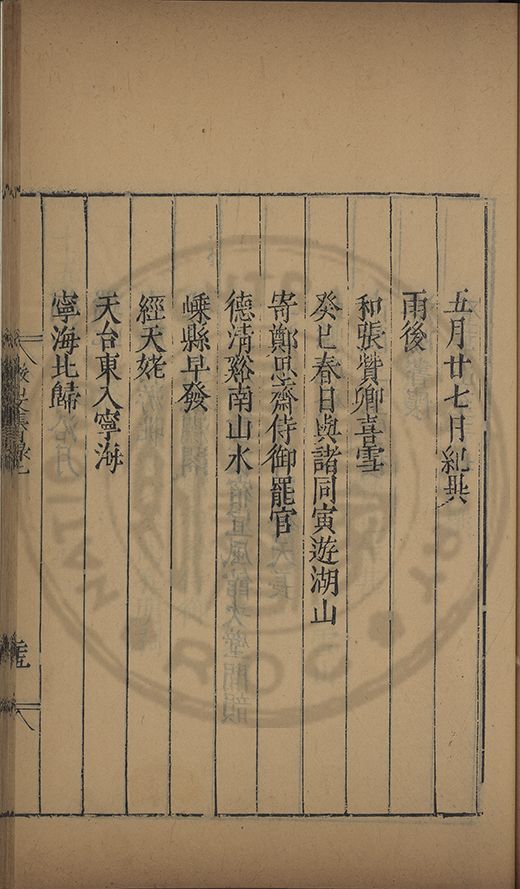 五月廿七日紀興
雨後
和張贊卿喜雪
癸巳春日與諸同寅遊湖山
寄鄭思齋侍御罷官
德清谿南山水
嵊縣早發
經天姥
天台東入寧海
寧海北歸